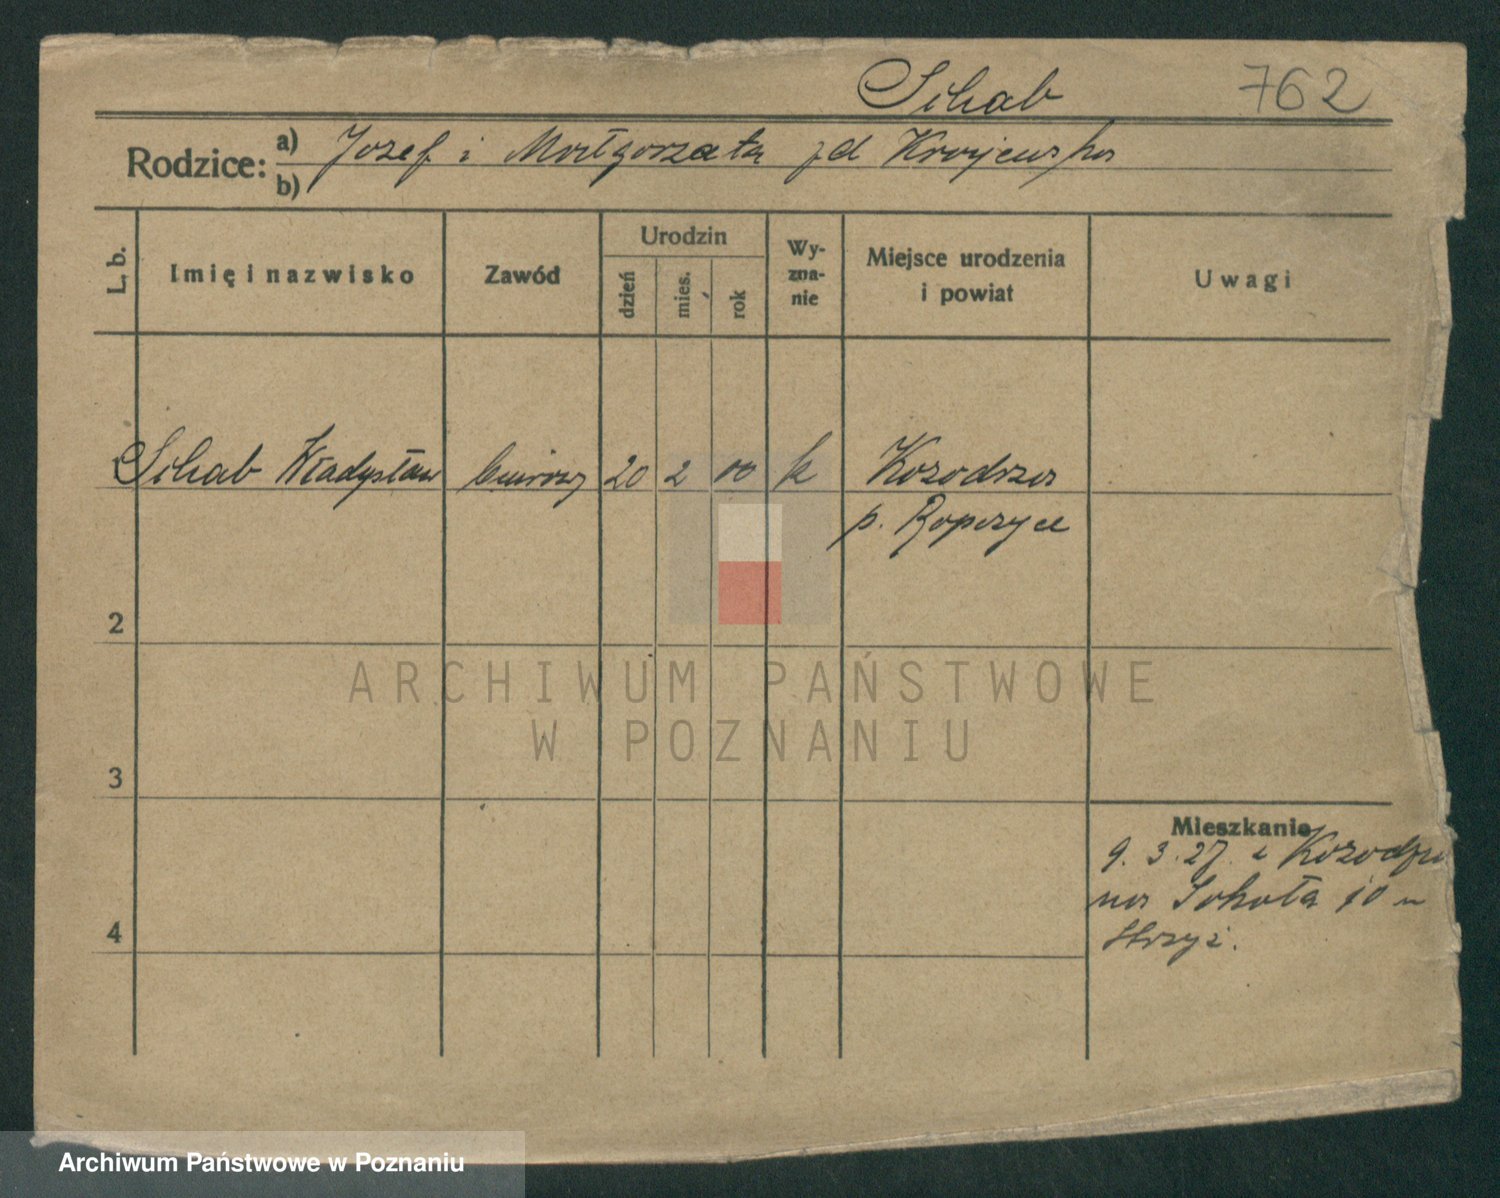 Schab 762
Rodzice: a) Jozef i Małgorzata zd Krajewska
b)
L. b. Imię i nazwisko Zawód Urodzin dzień mies. rok Wy-zna-nie Miejsce urodzenia i powiat Uwagi
1 Schab Władysław biurowy 20 2 00 k Kozodrza
p. Ropczyce
2
ARCHIWUM PAŃSTWOWE
W POZNANIU
3
Mieszkanie
9. 3. 27. z Kozodrza
na Sokoła 10 u
4
Archiwum Państwowe w Poznaniu